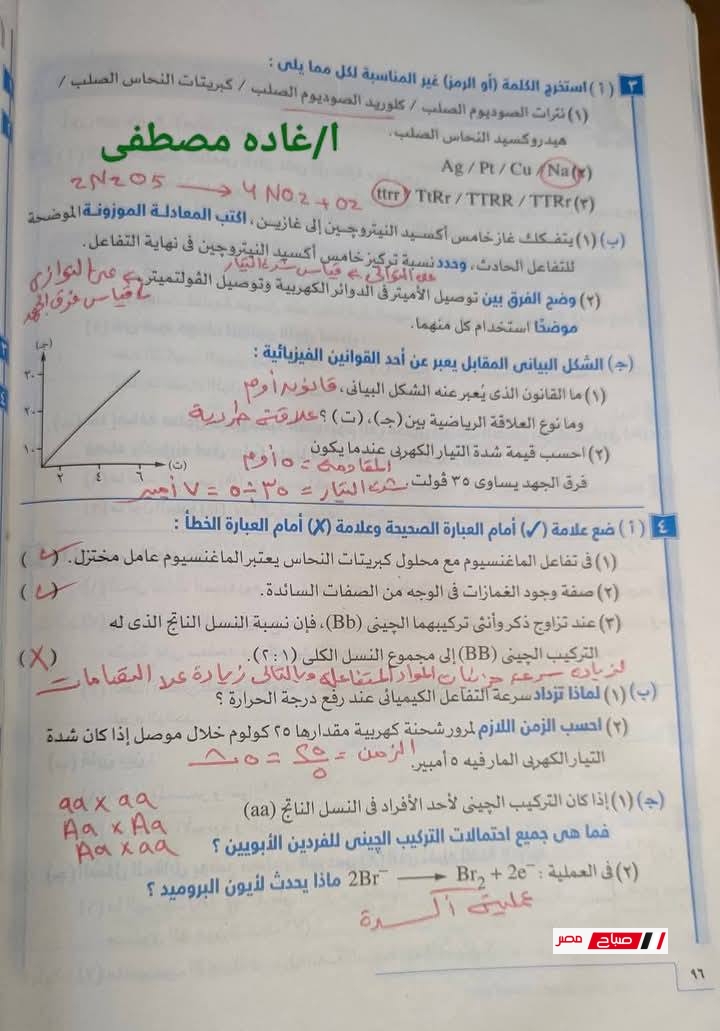 ٣ (أ) استخرج الكلمة (أو الرمز) غير المناسبة لكل مما يلى :
(١) نترات الصوديوم الصلب / كلوريد الصوديوم الصلب / كبريتات النحاس الصلب /
هيدروكسيد النحاس الصلب.
أ/غاده مصطفى
(٢) Ag / Pt / Cu / Na
2N2O5 → 4NO2 + O2
(٣) ttrr / TtRr / TTRR / TTRr
(ب) (١) يتفكك غاز خامس أكسيد النيتروچين إلى غازين، اكتب المعادلة الموزونة الموضحة
للتفاعل الحادث، وحدد نسبة تركيز خامس أكسيد النيتروچين فى نهاية التفاعل.
على التوالى لـ قياس شدة التيار
على التوازى
(٢) وضح الفرق بين توصيل الأميتر فى الدوائر الكهربية وتوصيل الڤولتميتر
لـ قياس فرق الجهد
موضحًا استخدام كل منهما.
(جـ) الشكل البيانى المقابل يعبر عن أحد القوانين الفيزيائية :
(جـ)
٣٠
٢٠
١٠
٢ ٤ ٦ (ت)
(١) ما القانون الذى يُعبر عنه الشكل البيانى، قانون أوم
وما نوع العلاقة الرياضية بين (جـ)، (ت) ؟ علاقة طردية
(٢) احسب قيمة شدة التيار الكهربى عندما يكون
المقاومة = ٥ أوم
فرق الجهد يساوى ٣٥ ڤولت
شدة التيار = ٣٥ ÷ ٥ = ٧ أمبير
٤ (أ) ضع علامة (✓) أمام العبارة الصحيحة وعلامة (✗) أمام العبارة الخطأ :
(١) فى تفاعل الماغنسيوم مع محلول كبريتات النحاس يعتبر الماغنسيوم عامل مختزل. (✓)
(٢) صفة وجود الغمازات فى الوجه من الصفات السائدة. (✓)
(٣) عند تزاوج ذكر وأنثى تركيبهما الچينى (Bb)، فإن نسبة النسل الناتج الذى له
التركيب الچينى (BB) إلى مجموع النسل الكلى (١ : ٢). (X)
لزيادة سرعة جزيئات المواد المتفاعلة وبالتالى زيادة عدد التصادمات
(ب) (١) لماذا تزداد سرعة التفاعل الكيميائى عند رفع درجة الحرارة ؟
(٢) احسب الزمن اللازم لمرور شحنة كهربية مقدارها ٢٥ كولوم خلال موصل إذا كان شدة
التيار الكهربى المار فيه ٥ أمبير. الزمن = ٢٥/٥ = ٥ ث
(جـ) (١) إذا كان التركيب الچينى لأحد الأفراد فى النسل الناتج (aa)
فما هى جميع احتمالات التركيب الچينى للفردين الأبويين ؟
aa x aa
Aa x Aa
Aa x aa
(٢) فى العملية : 2Br⁻ → Br₂ + 2e⁻ ماذا يحدث لأيون البروميد ؟
عملية أكسدة
صباح مصر
٩٦